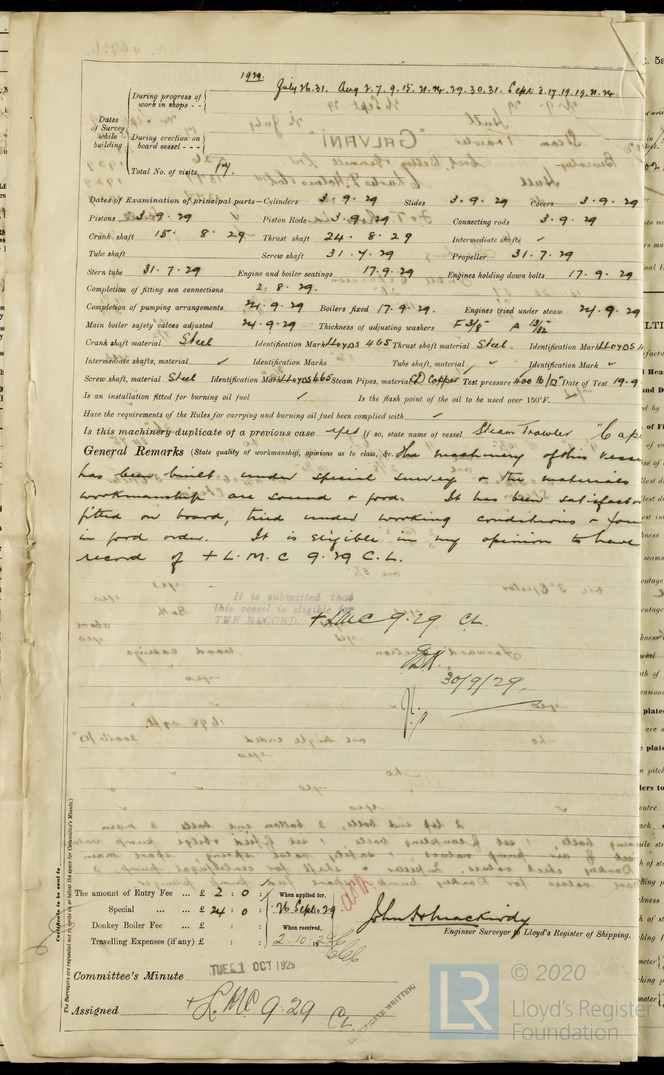 1929.
During progress of work in shops - -
July 26.31. Aug 2.7.9.15.21.24.29.30.31. Sept 3.17.19.19.21.24.
Dates of Survey while building
During erection on board vessel - - -
Total No. of visits 17.
Dates of Examination of principal parts—Cylinders 3.9.29 Slides 3.9.29 Covers 3.9.29
Pistons 3.9.29 Piston Rods 3.9.29 Connecting rods 3.9.29
Crank shaft 15. 8.29 Thrust shaft 24.8.29 Intermediate shafts ✓
Tube shaft Screw shaft 31.7.29 Propeller 31.7.29
Stern tube 31.7.29 Engine and boiler seatings 17.9.29 Engines holding down bolts 17.9.29
Completion of fitting sea connections 2.8.29.
Completion of pumping arrangements 24.9.29 Boilers fixed 17.9.29 Engines tried under steam 24.9.29
Main boiler safety valves adjusted 24.9.29 Thickness of adjusting washers F 3/8 A 13/32
Crank shaft material Steel Identification Mark LLOYDS 465 Thrust shaft material Steel Identification Mark LLOYDS
Intermediate shafts, material ✓ Identification Marks Tube shaft, material ✓ Identification Mark ✓
Screw shaft, material Steel Identification Mark LLOYDS 465 Steam Pipes, material Copper Test pressure 400 lb/□" Date of Test 19.9.
Is an installation fitted for burning oil fuel ✓ Is the flash point of the oil to be used over 150°F. ✓
Have the requirements of the Rules for carrying and burning oil fuel been complied with ✓
Is this machinery duplicate of a previous case yes If so, state name of vessel Steam Trawler "Cape
General Remarks (State quality of workmanship, opinions as to class, &c. The machinery of this vesse
has been built under special survey & the materials
workmanship are sound & good. It has been satisfactor
fitted on board, tried under working conditions & foun
in good order. It is eligible in my opinion to have
record of + L.M.C 9.29 C.L.
It is submitted that
this vessel is eligible for
THE RECORD. + LMC 9.29 CL.
30/9/29.
Certificate to be sent to
(The Surveyors are requested not to write on or below the space for Committee's Minute.)
The amount of Entry Fee ... £ 2 : 0 : When applied for,
Special ... ... £ 24 : 0 : 26 Sept. 1929
Donkey Boiler Fee ... £ : : When received,
Travelling Expenses (if any) £ : : 2.10.29
John A. Mackirdy
Engineer Surveyor to Lloyd's Register of Shipping.
Committee's Minute TUE. 1 OCT 1929
Assigned + L.M.C 9.29 CL
CERTIFICATE WRITTEN
LR
© 2020
Lloyd's Register
Foundation